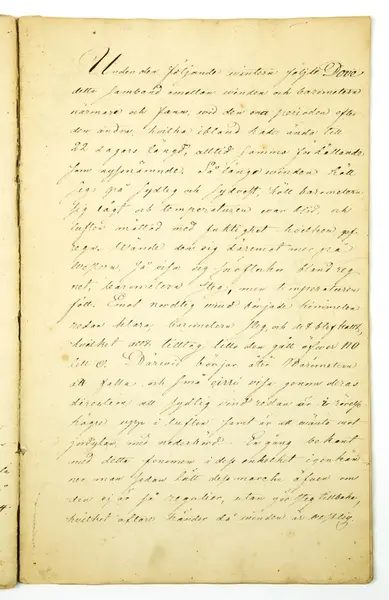 Under den följande vintern följde Dove
detta samband emellan vinden och barometern
närmare och fann, wid den ena perioden efter
den andra, hvilka ibland hade ända till
22 dagars längd, alltid samma förhållande
som nyssnämnde. Så länge winden höll
sig på sydlig och sydost, höll barometern
sig lågt och temperaturen war blid, och
luften mättad med fuktighet hvilken
regn. Wände den sig däremot mer på
western, så visa sig snöflockar bland reg
net, barometern steg, men temperaturen
föll. Emot nordlig wind började himmelen
redan klarna, barometern steg, och det blef kallt,
hvilket
till o. Därwid börjar åter Barometern
att falla, och små cirri visa genom deras
direction att sydlig vind redan är i
högre uppe i luften samt är ad wänta mot
jordytan, med nederbörd. En gång bekant
med detta fenomen i dess enkelhet igenkän
ner man sedan lätt dess marche äfven om
den ej är så regulier, utan går steg tillbaka,
hvilket oftare händer då winden är westlig.